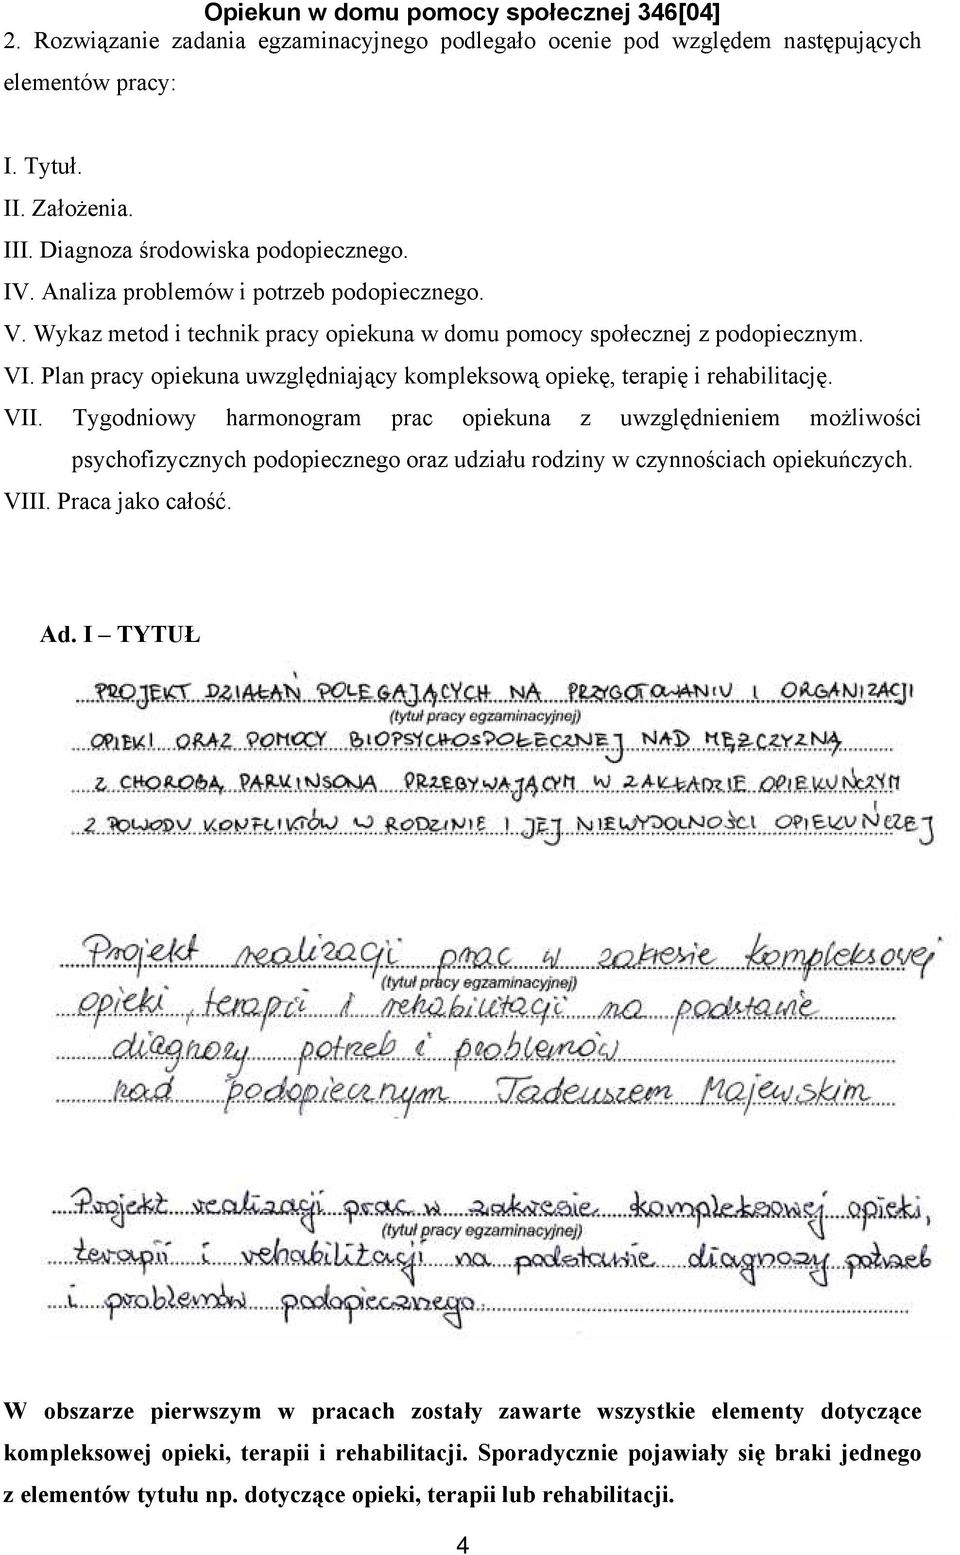 Opiekun w domu pomocy społecznej 346[04]
2. Rozwiązanie zadania egzaminacyjnego podlegało ocenie pod względem następujących
elementów pracy:
I. Tytuł.
II. Założenia.
III. Diagnoza środowiska podopiecznego.
IV. Analiza problemów i potrzeb podopiecznego.
V. Wykaz metod i technik pracy opiekuna w domu pomocy społecznej z podopiecznym.
VI. Plan pracy opiekuna uwzględniający kompleksową opiekę, terapię i rehabilitację.
VII. Tygodniowy harmonogram prac opiekuna z uwzględnieniem możliwości
psychofizycznych podopiecznego oraz udziału rodziny w czynnościach opiekuńczych.
VIII. Praca jako całość.
Ad. I – TYTUŁ
PROJEKT DZIAŁAŃ POLEGAJĄCYCH NA PRZYGOTOWANIU I ORGANIZACJI
(tytuł pracy egzaminacyjnej)
OPIEKI ORAZ POMOCY BIOPSYCHOSPOŁECZNEJ NAD MĘŻCZYZNĄ
Z CHOROBĄ PARKINSONA PRZEBYWAJĄCYM W ZAKŁADZIE OPIEKUŃCZYM
Z POWODU KONFLIKTÓW W RODZINIE I JEJ NIEWYDOLNOŚCI OPIEKUŃCZEJ
Projekt realizacji prac w zakresie kompleksowej
(tytuł pracy egzaminacyjnej)
opieki, terapii i rehabilitacji na podstawie
diagnozy potrzeb i problemów
nad podopiecznym Tadeuszem Majewskim
Projekt realizacji prac w zakresie kompleksowej opieki,
(tytuł pracy egzaminacyjnej)
terapii i rehabilitacji na podstawie diagnozy potrzeb
i problemów podopiecznego.
W obszarze pierwszym w pracach zostały zawarte wszystkie elementy dotyczące
kompleksowej opieki, terapii i rehabilitacji. Sporadycznie pojawiały się braki jednego
z elementów tytułu np. dotyczące opieki, terapii lub rehabilitacji.
4